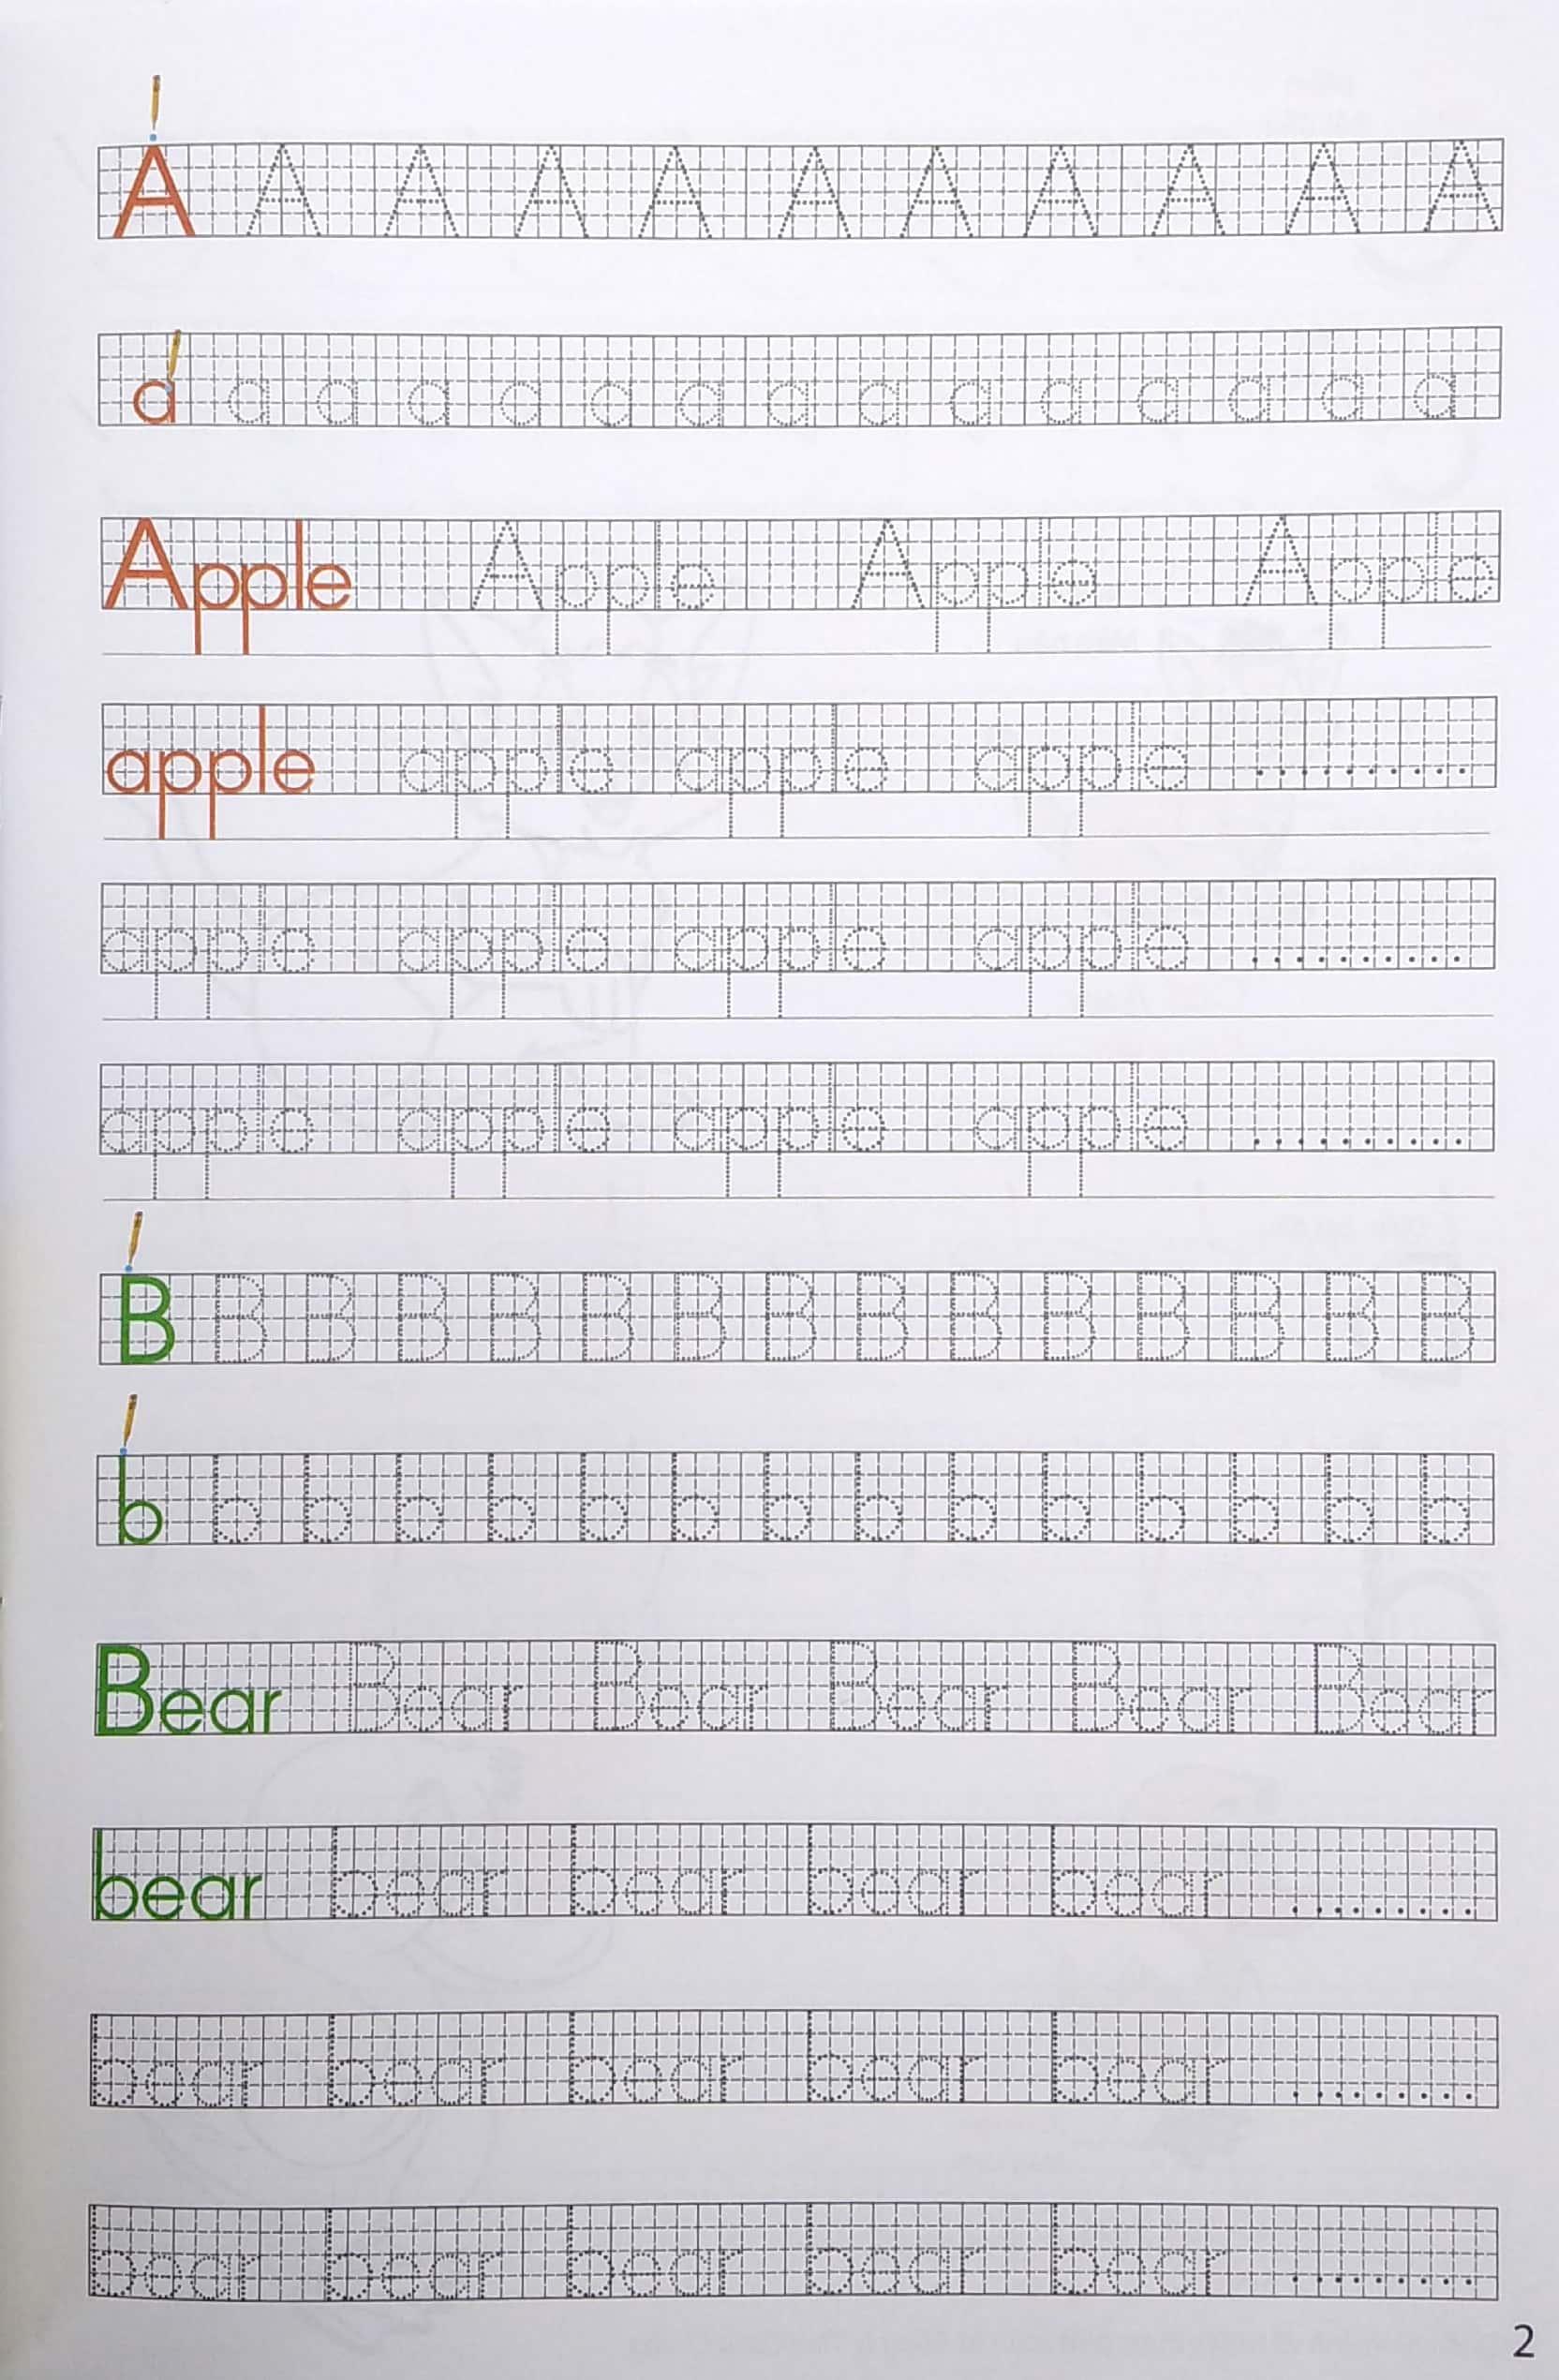 A A A A A A A A A A A
a a a a a a a a a a a a a a a
Apple Apple Apple Apple
apple apple apple apple ..........
apple apple apple apple ..........
apple apple apple apple ..........
B B B B B B B B B B B B B B B
b b b b b b b b b b b b b b b
Bear Bear Bear Bear Bear Bear
bear bear bear bear bear .........
bear bear bear bear bear .........
bear bear bear bear bear .........
2